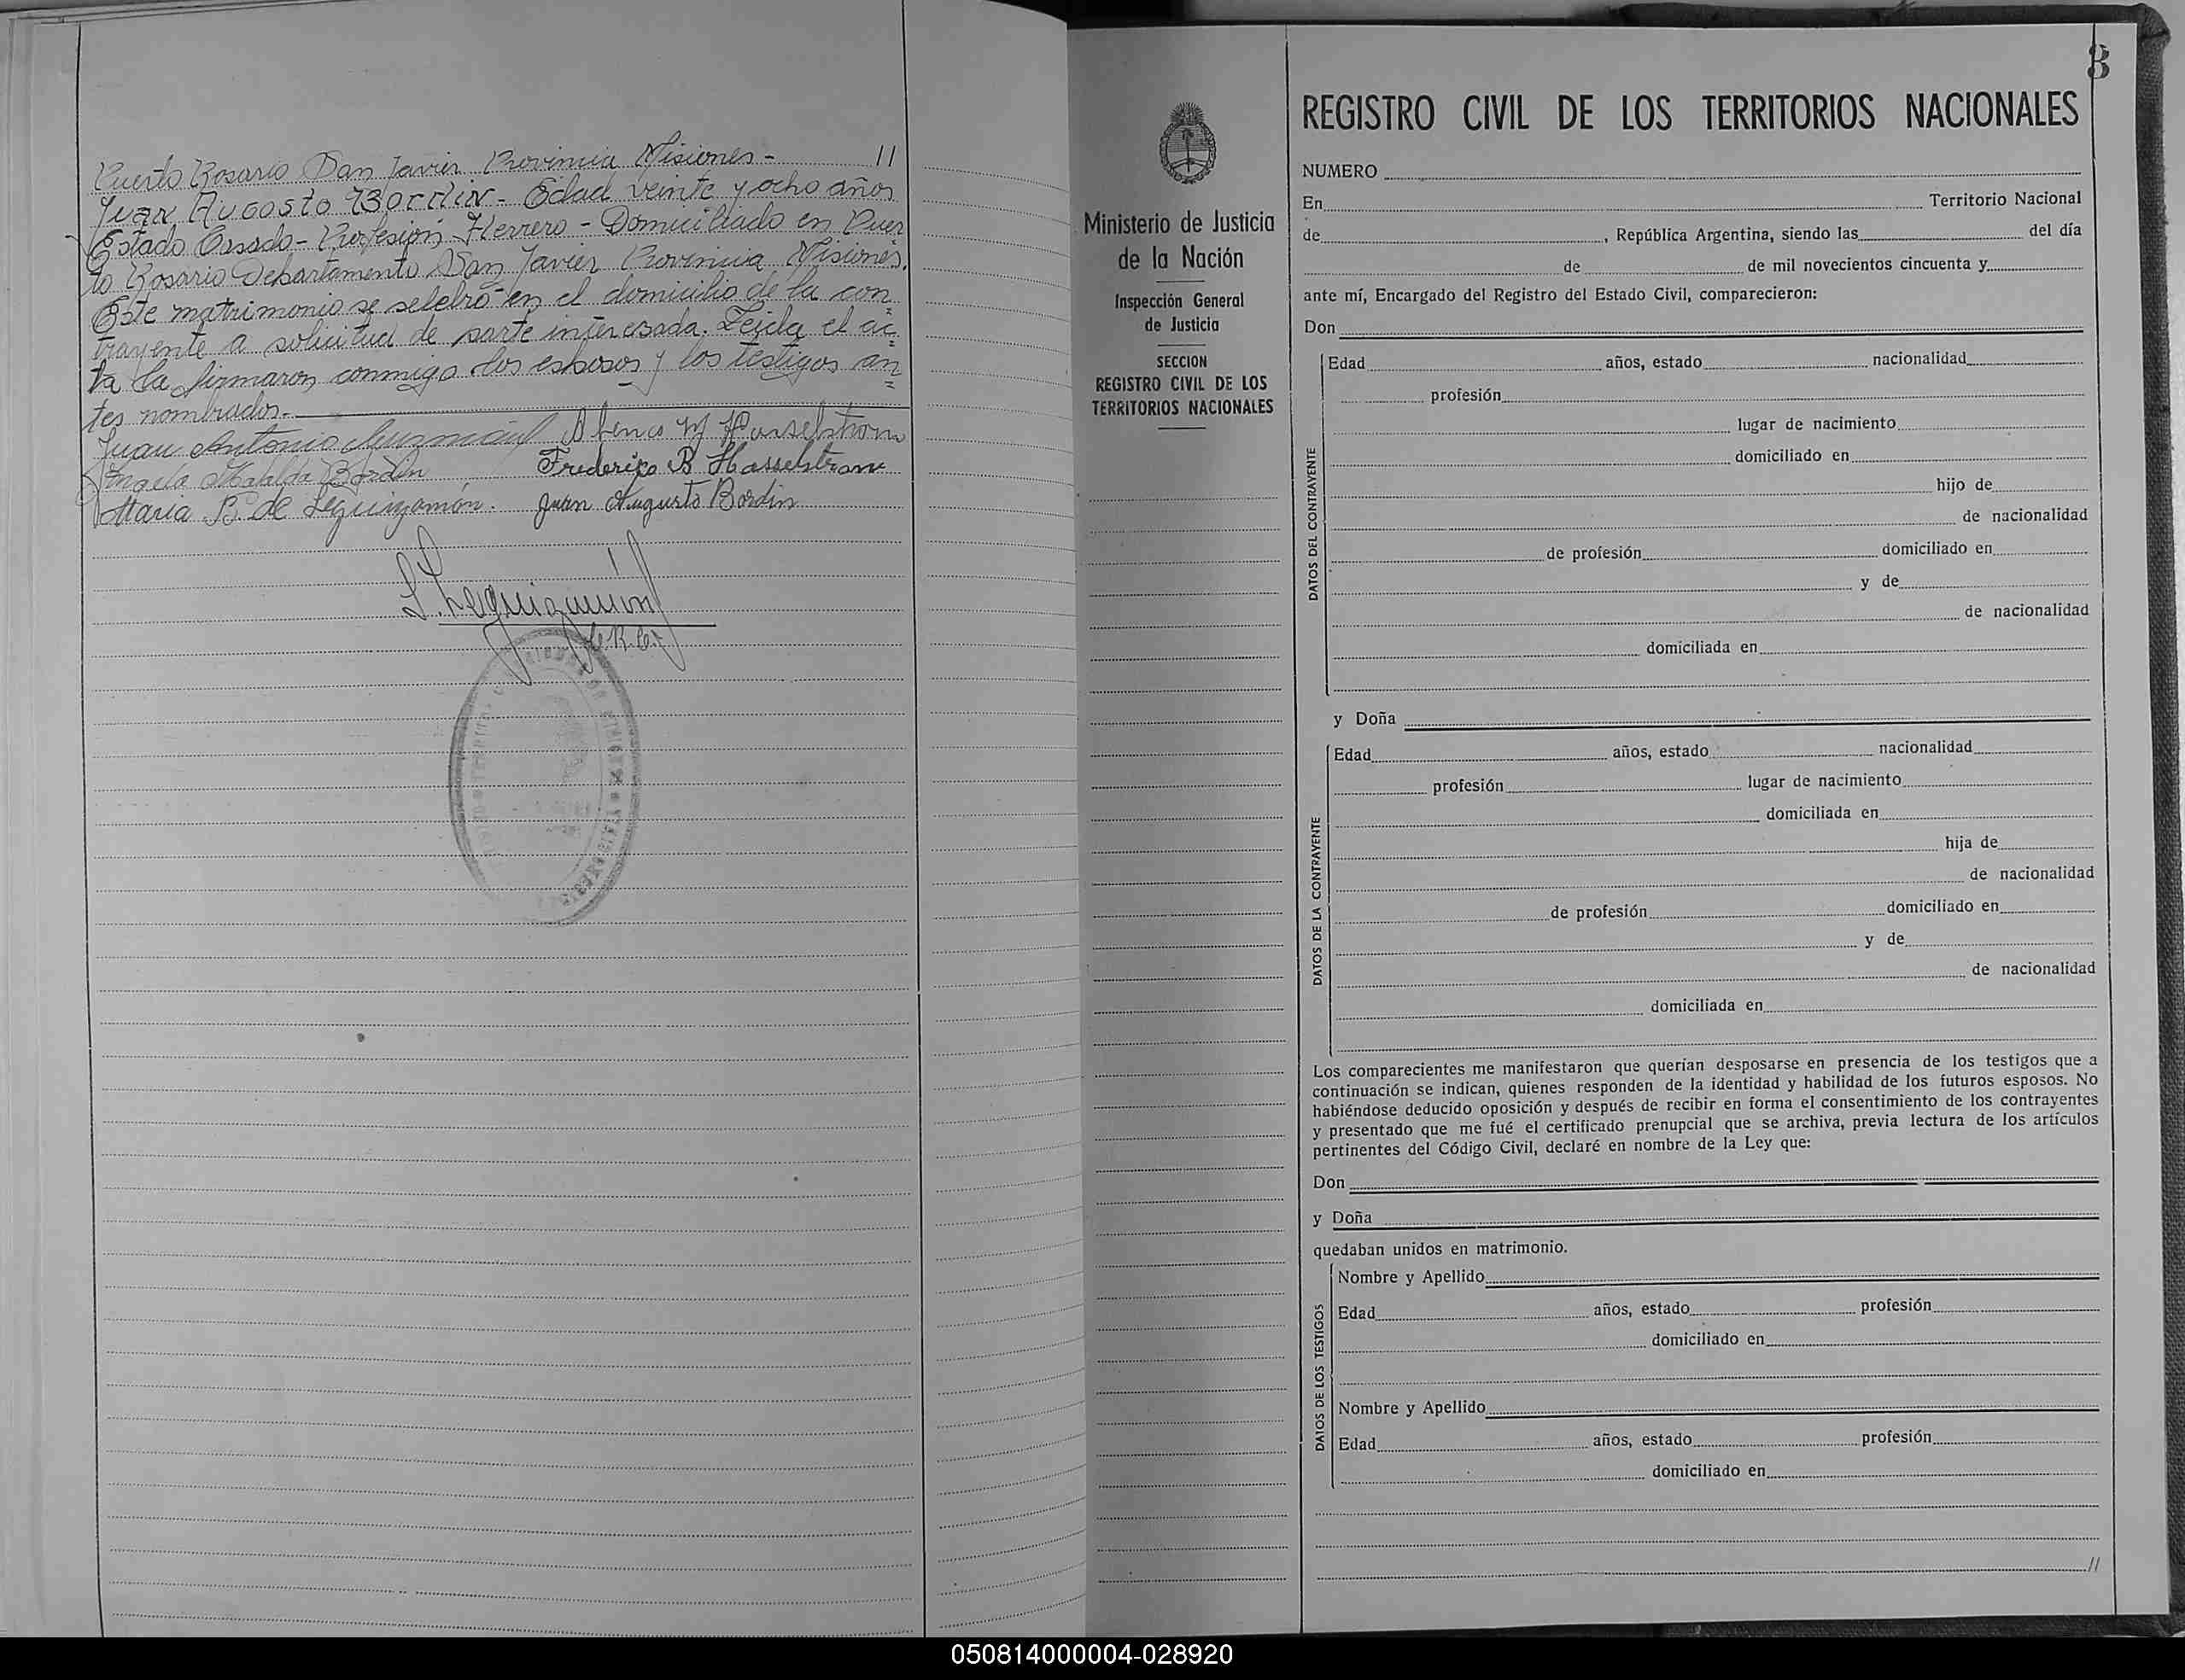 Puerto Rosario San Javier Provincia Misiones - 11
Juan Augosto Bordin - Edad veinte y ocho años
Estado Casado - Profesión Herrero - Domiciliado en Puer
to Rosario Departamento San Javier Provincia Misiones.
Este matrimonio se selebró en el domicilio de la con
trayente a solicitud de parte interesada. Leida el ac
ta la firmaron conmigo los esposos y los testigos an=
tes nombrados.
Juan Antonio Guzmán
M Hasselstrom
Angela Mafalda Bordin
Frederico B Hasselstrom
Maria B. de Leguizamón.
Juan Augusto Bordin
L. Leguizamón
3
REGISTRO CIVIL DE LOS TERRITORIOS NACIONALES
Ministerio de Justicia
de la Nación
Inspección General
de Justicia
SECCION
REGISTRO CIVIL DE LOS
TERRITORIOS NACIONALES
NUMERO
En Territorio Nacional
de , República Argentina, siendo las del día
de de mil novecientos cincuenta y
ante mí, Encargado del Registro del Estado Civil, comparecieron:
Don
DATOS DEL CONTRAYENTE
Edad años, estado nacionalidad
profesión
lugar de nacimiento
domiciliado en
hijo de
de nacionalidad
de profesión domiciliado en
y de
de nacionalidad
domiciliada en
y Doña
DATOS DE LA CONTRAYENTE
Edad años, estado nacionalidad
profesión lugar de nacimiento
domiciliada en
hija de
de nacionalidad
de profesión domiciliado en
y de
de nacionalidad
domiciliada en
Los comparecientes me manifestaron que querían desposarse en presencia de los testigos que a
continuación se indican, quienes responden de la identidad y habilidad de los futuros esposos. No
habiéndose deducido oposición y después de recibir en forma el consentimiento de los contrayentes
y presentado que me fué el certificado prenupcial que se archiva, previa lectura de los artículos
pertinentes del Código Civil, declaré en nombre de la Ley que:
Don
y Doña
quedaban unidos en matrimonio.
DATOS DE LOS TESTIGOS
Nombre y Apellido
Edad años, estado profesión
domiciliado en
Nombre y Apellido
Edad años, estado profesión
domiciliado en
//
050814000004-028920